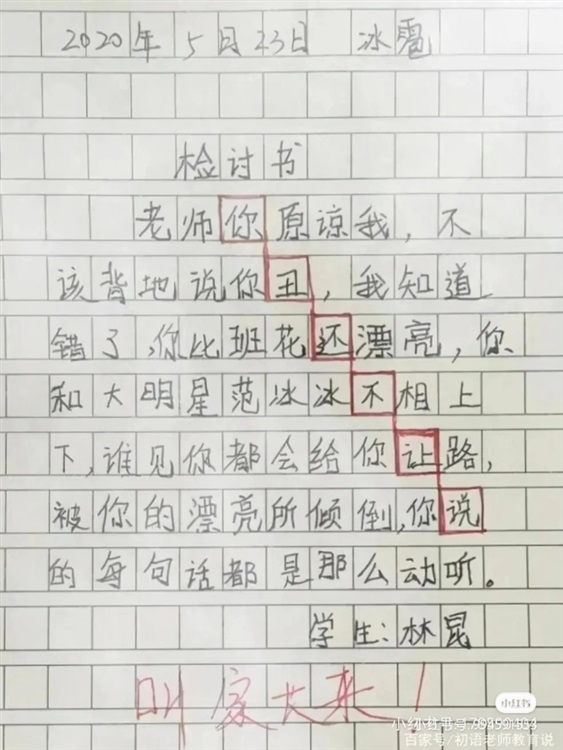 2020年5月23日 冰雹
检讨书
老师你原谅我，不
该背地说你丑，我知道
错了，你比班花还漂亮，你
和大明星范冰冰不相上
下，谁见你都会给你让路，
被你的漂亮所倾倒，你说
的每句话都是那么动听。
学生：林昆
叫家大来！
小红书
百家号/初语老师教育说